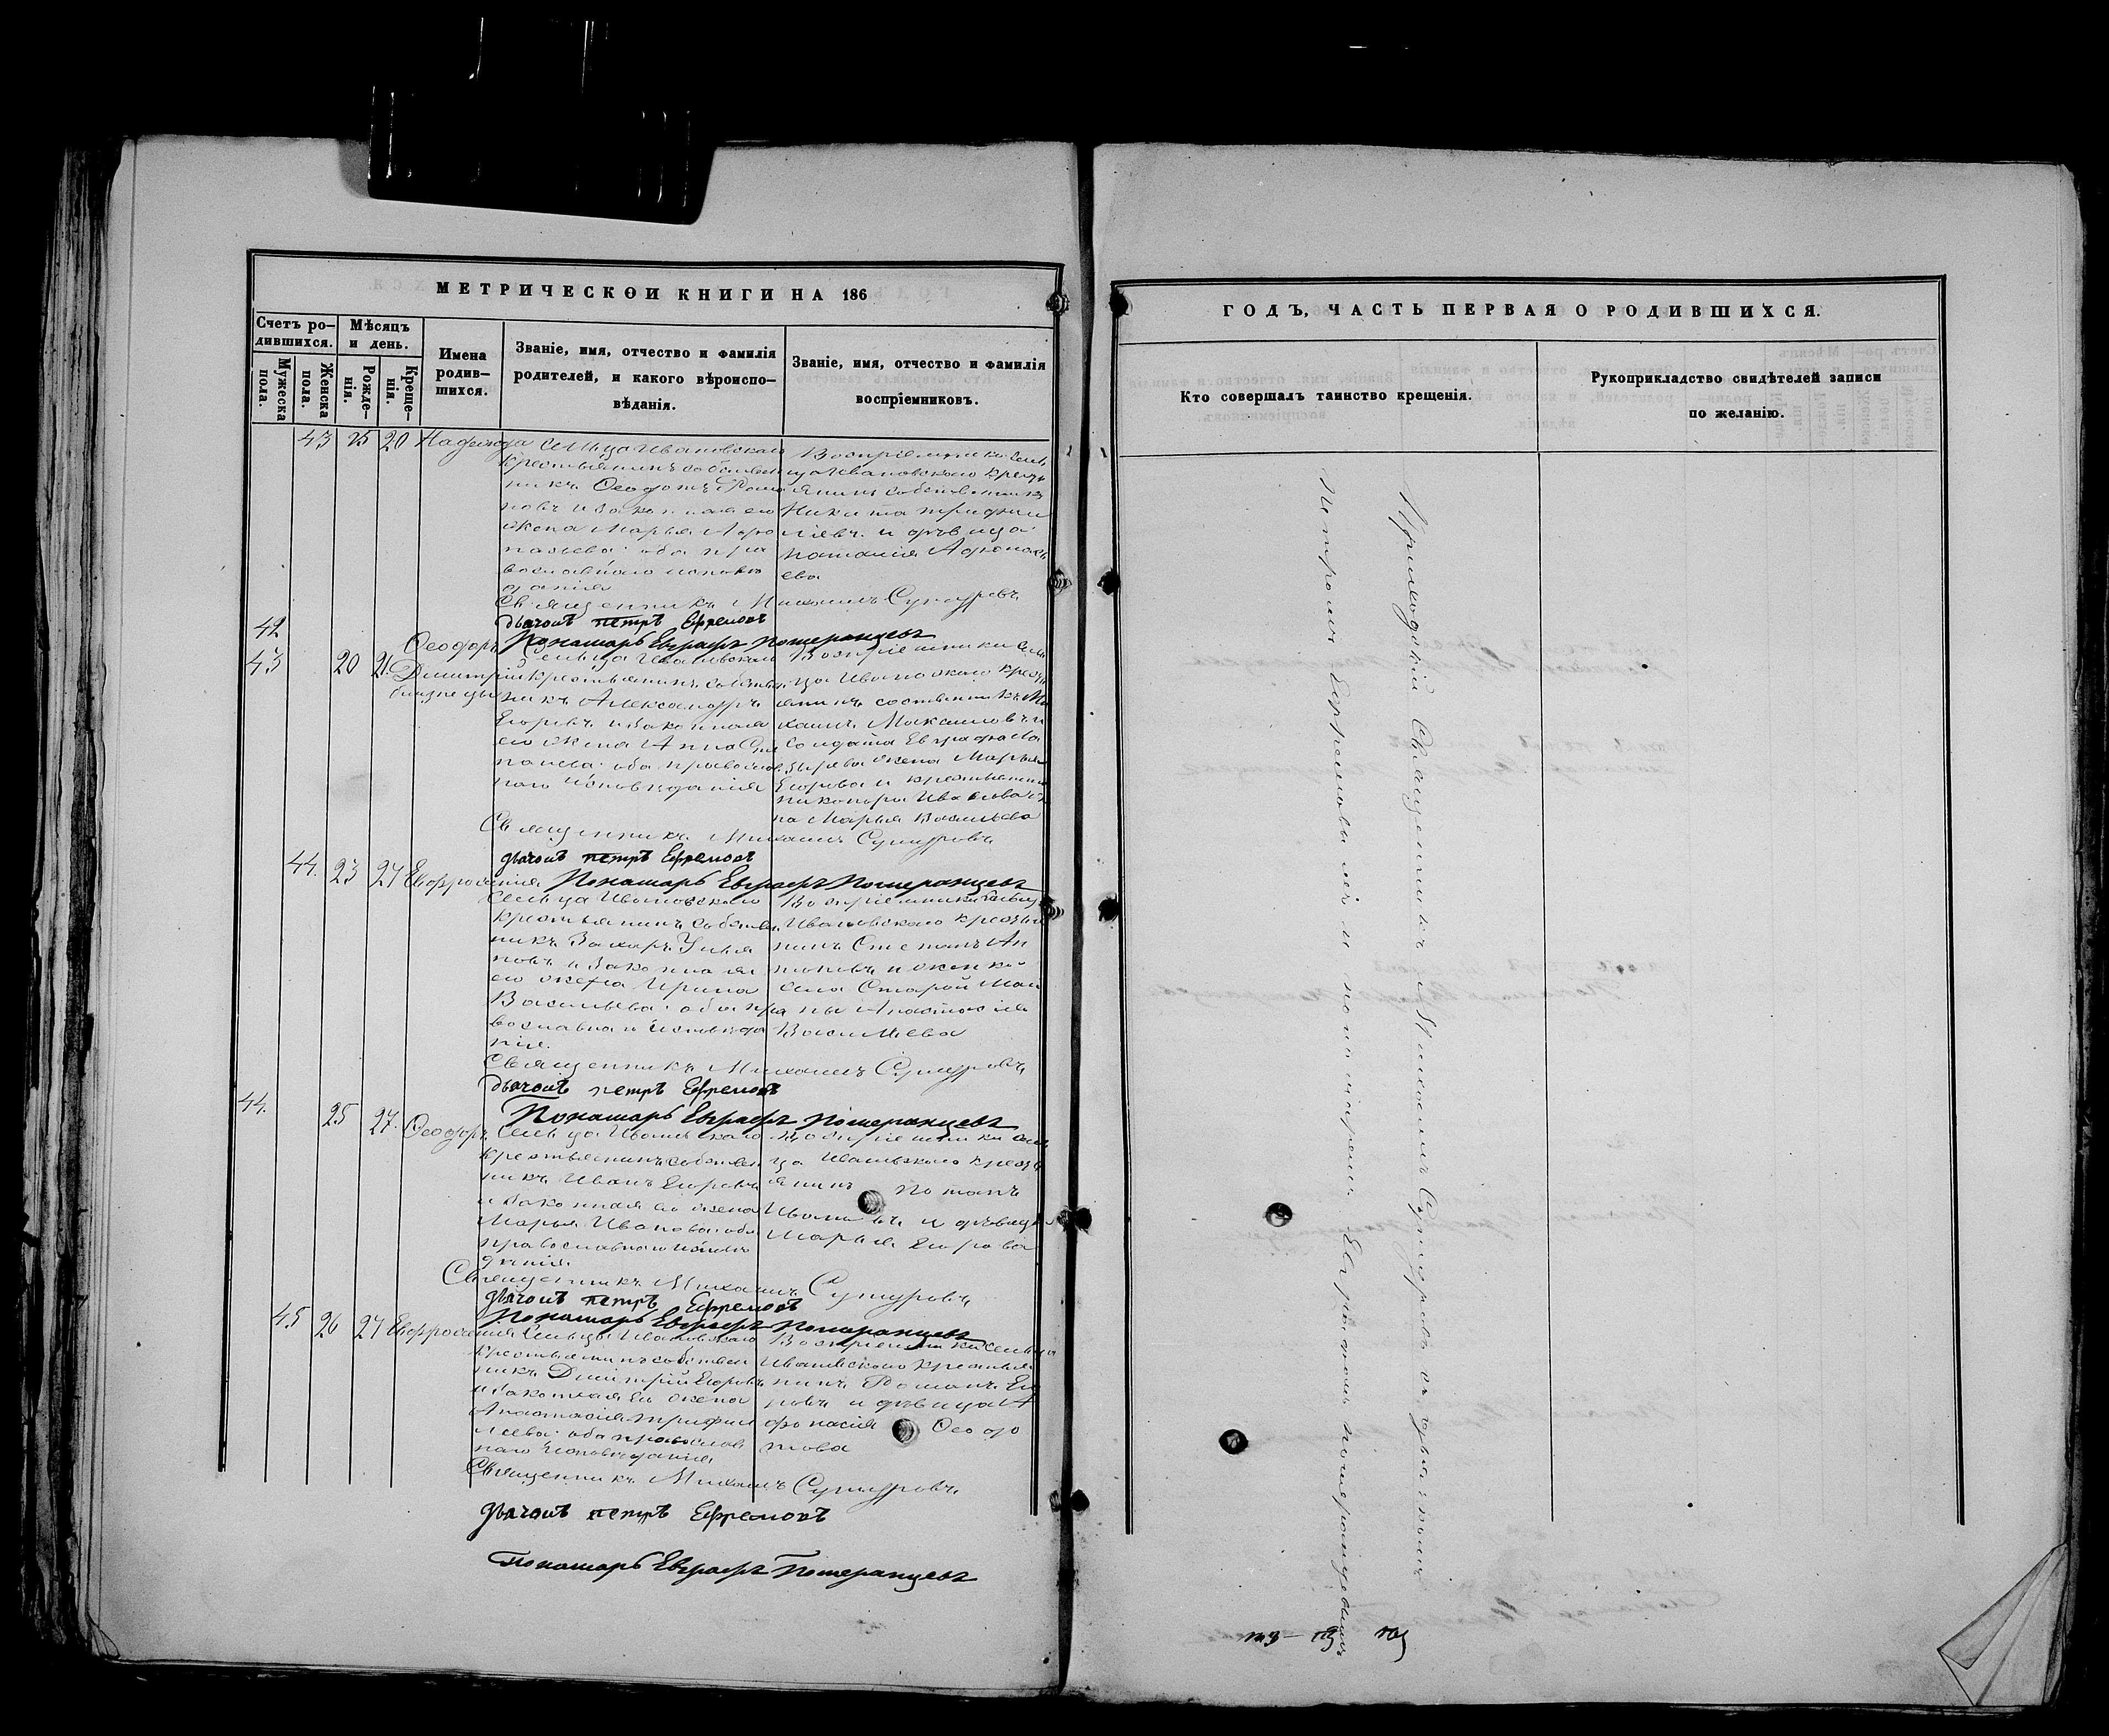 МЕТРИЧЕСКОИ КНИГИ НА 186
Счетъ ро-
дившихся.
Мѣсяцъ
и день.
Мужеска
пола.
Женска
пола.
Рожде-
нія.
Креще-
нія.
Имена
родив-
шихся.
Званіе, имя, отчество и фамилія
родителей, и какого вѣроиспо-
вѣданія.
Званіе, имя, отчество и фамилія
воспріемниковъ.
43 15 20 Надежда
Сельца Ивановскаго
крестьянинъ собствен
никъ Ѳеодотъ Рома
новъ и законная его
жена Марья Афо
насьева оба пра
вославнаго исповѣ
данія
Воспріемники сель
ца Ивановскаго кресть
янинъ собственникъ
Никита Трифи
ліевъ и дѣвица
Наталія Афонась
ева
Священникъ Михаилъ Сумуровъ
дьячокъ петръ Ефремовъ
Пономарь Евграфъ Померанцевъ
42
43 20 21
Ѳеодоръ
Димитрій
близнецы
Сельца Ивановскаго
крестьянинъ собствен
никъ Александръ
Егоровъ и законная
его жена Анна
оба православ
наго исповѣданія
Воспріемники сель
ца Ивановскаго кресть
янинъ собственникъ Ми
хаилъ Максимовъ и
солдата Евграфа
жена Марья
Егорова и крестьянина
Никонора
Марья Васильева
Священникъ Михаилъ Сумуровъ
дьячокъ петръ Ефремовъ
Пономарь Евграфъ Померанцевъ
44. 23 27 Евфросинія
Сельца Ивановскаго
крестьянинъ собствен
никъ Захаръ Улья
новъ и законная
его жена Ирина
Васильева оба пра
вославнаго исповѣда
нія.
Воспріемники сельца
Ивановскаго крестья
нинъ Степанъ Ан
тоновъ и
села Старой
ны Анастасія
Васильева
Священникъ Михаилъ Сумуровъ
дьячокъ петръ Ефремовъ
Пономарь Евграфъ Померанцевъ
44. 25 27. Ѳеодоръ
Сельца Ивановскаго
крестьянинъ собствен
никъ Иванъ Егоровъ
и законная его жена
Марья Иванова оба
православнаго исповѣ
данія.
Воспріемники сель
ца Ивановскаго кресть
янинъ Потапъ
Ивановъ и дѣвица
Марья Егорова
Священникъ Михаилъ Сумуровъ
дьячокъ петръ Ефремовъ
Пономарь Евграфъ Померанцевъ
45 26 27 Евфросинія
Сельца Ивановскаго
крестьянинъ собствен
никъ Димитрій Егоровъ
и законная его жена
Анастасія Трифи
лиева оба православ
наго исповѣданія
Воспріемники сельца
Ивановскаго крестья
нинъ Романъ Его
ровъ и дѣвица А
фонасія Ѳеодо
това
Священникъ Михаилъ Сумуровъ
дьячокъ петръ Ефремовъ
Пономарь Евграфъ Померанцевъ
ГОДЪ, ЧАСТЬ ПЕРВАЯ О РОДИВШИХСЯ.
Кто совершалъ таинство крещенія.
Рукоприкладство свидѣтелей записи
по желанію.
Приходскій Священникъ Михаилъ Сумуровъ съ дьячкомъ
Петромъ Ефремовымъ и пономаремъ Евграфомъ Померанцевымъ